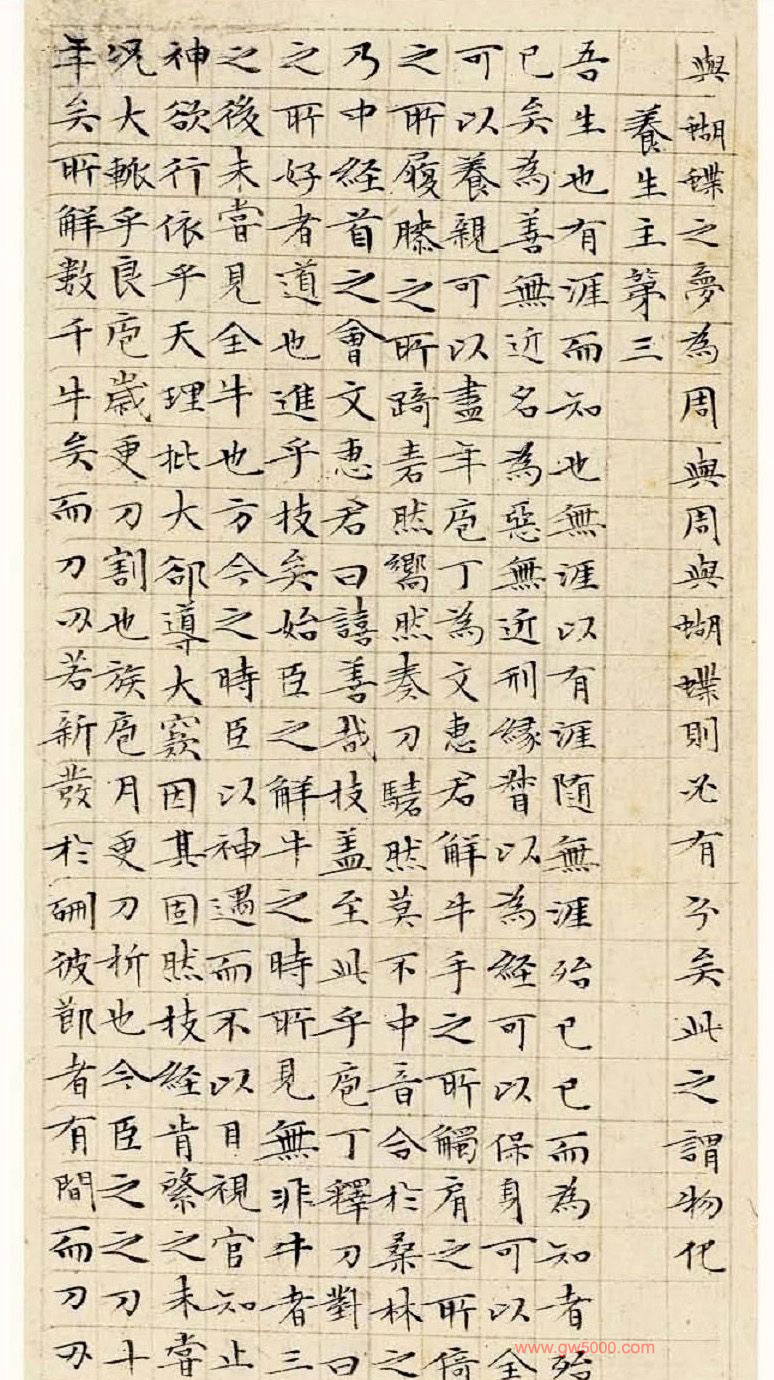 與蝴蝶之夢為周與周與蝴蝶則必有分矣此之謂物化
養生主第三
吾生也有涯而知也無涯以有涯随無涯殆已已而為知者殆
已矣為善無近名為惡無近刑緣督以為經可以保身可以全
可以養親可以盡年庖丁為文惠君解牛手之所觸肩之所倚
之所履膝之所踦砉然嚮然奏刀騞然莫不中音合於桑林之
乃中經首之會文惠君曰譆善哉技盖至此乎庖丁釋刀對曰
之所好者道也進乎技矣始臣之解牛之時所見無非牛者三
之後未嘗見全牛也方今之時臣以神遇而不以目視官知止
神欲行依乎天理批大郤導大窾因其固然技經肯綮之未嘗
况大軱乎良庖歲更刀割也族庖月更刀折也今臣之刀十
年矣所解數千牛矣而刀刃若新發於硎彼節者有間而刀刃
www.gw5000.com